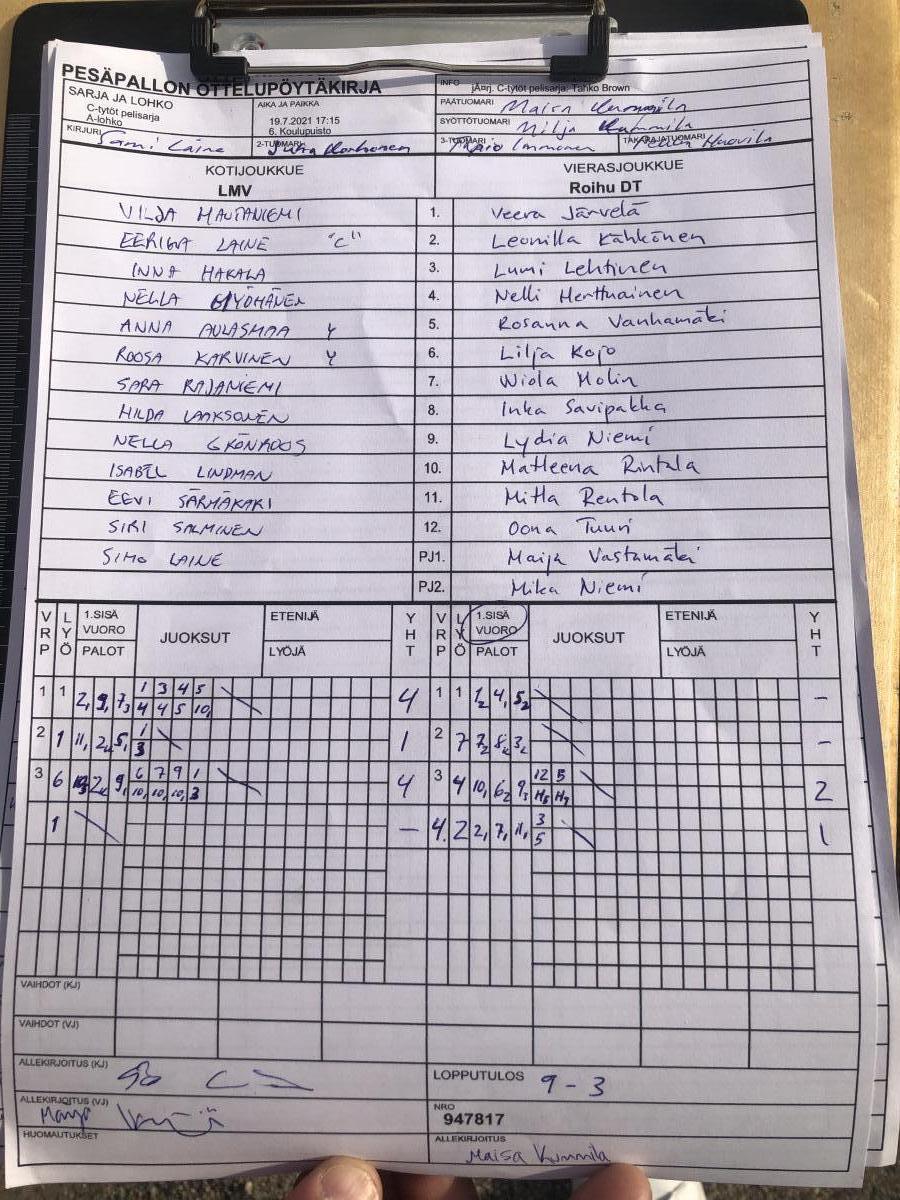 PESÄPALLON OTTELUPÖYTÄKIRJA
SARJA JA LOHKO
C-tytöt pelisarja
A-lohko
KIRJURI Sami Laine
AIKA JA PAIKKA
19.7.2021 17:15
6. Koulupuisto
2-TUOMARI Juha Korhonen
INFO
jÃ¤rj. C-tytöt pelisarja: Tahko Brown
PÄÄTUOMARI Maisa Kummila
SYÖTTÖTUOMARI Milja Kummila
3-TUOMARI Immonen
TAKARAJATUOMARI Huovila
KOTIJOUKKUE
LMV
VIERASJOUKKUE
Roihu DT
VILJA HAUTANIEMI 1. Veera Järvelä
EERIKA LAINE "C" 2. Leonilla Kähkönen
INNA HAKALA 3. Lumi Lehtinen
NELLA 4. Nelli Herttuainen
ANNA AULASMAA Y 5. Rosanna Vanhamäki
ROOSA KARVINEN Y 6. Lilja Kojo
SARA RAJANIEMI 7. Wiola Molin
HILDA LAAKSONEN 8. Inka Savipakka
NELLA GRÖNROOS 9. Lydia Niemi
ISABEL LINDMAN 10. Matleena Rintala
EEVI SÄRMÄKARI 11. Mitla Rentola
SIRI SALMINEN 12. Oona Tuuri
SIMO LAINE PJ1. Maija Vastamäki
PJ2. Mika Niemi
VRP LYÖ 1.SISÄ VUORO PALOT JUOKSUT ETENIJÄ LYÖJÄ YHT VRP LYÖ 1.SISÄ VUORO PALOT JUOKSUT ETENIJÄ LYÖJÄ YHT
1 1 2, 9, 7₃ 1 3 4 5 4 1 1 1₂ 4, 5₂ -
4 4 5 10,
2 1 11, 2ₖ 5, 1 1 2 7 7₂ 8ₖ 3₂ -
3
3 6 2ₖ 9, 6 7 9 1 4 3 4 10, 6₂ 9₃ 12 5 2
10, 10, 10, 3 H₅ H₇
1 - 4. 2 2, 7, 11, 3 1
5
VAIHDOT (KJ)
VAIHDOT (VJ)
ALLEKIRJOITUS (KJ)
LOPPUTULOS 9 - 3
ALLEKIRJOITUS (VJ) Maija
NRO
947817
HUOMAUTUKSET
ALLEKIRJOITUS
Maisa Kummila